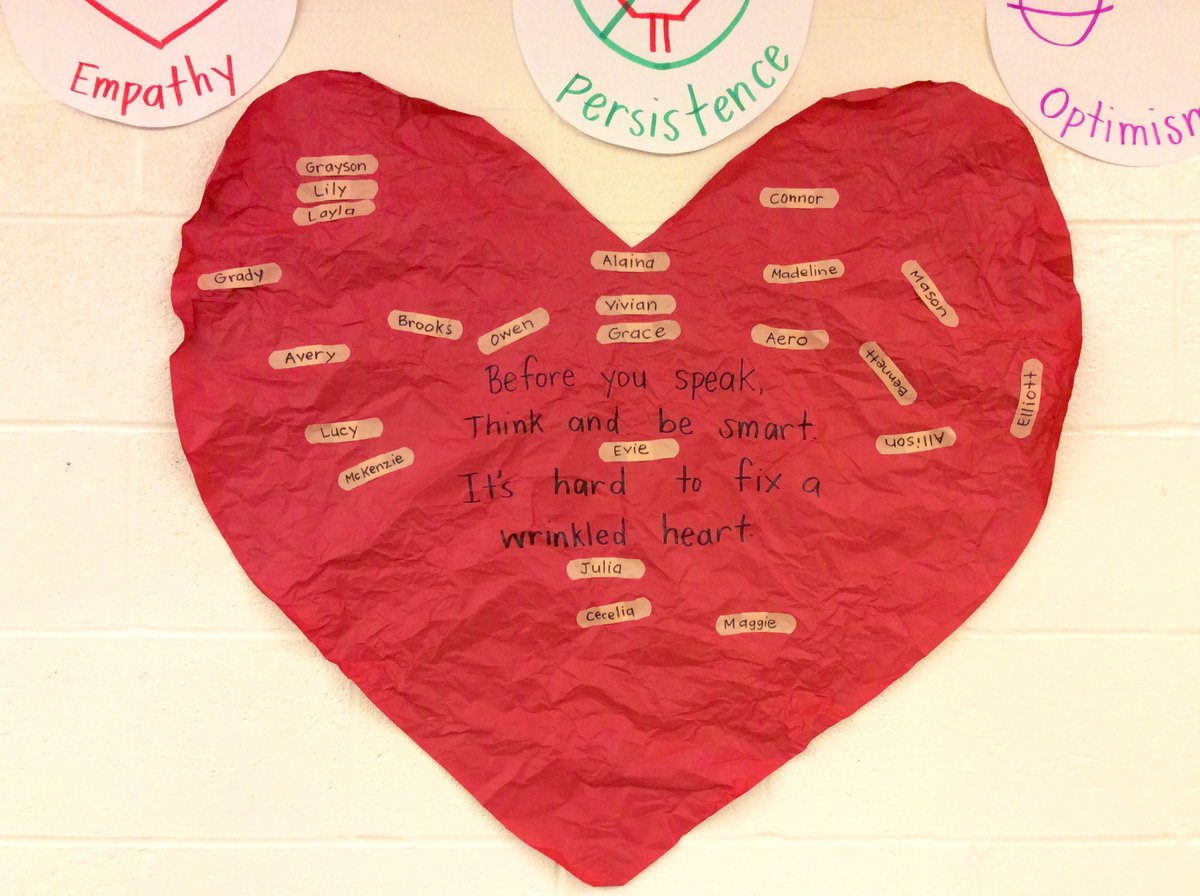 Empathy
Persistence
Optimism
Grayson
Lily
Layla
Connor
Alaina
Madeline
Grady
Mason
Vivian
Brooks
Owen
Grace
Aero
Avery
Bennett
Elliott
Before you speak,
Think and be smart.
Lucy
Allison
Evie
McKenzie
It's hard to fix a
wrinkled heart.
Julia
Cecelia
Maggie